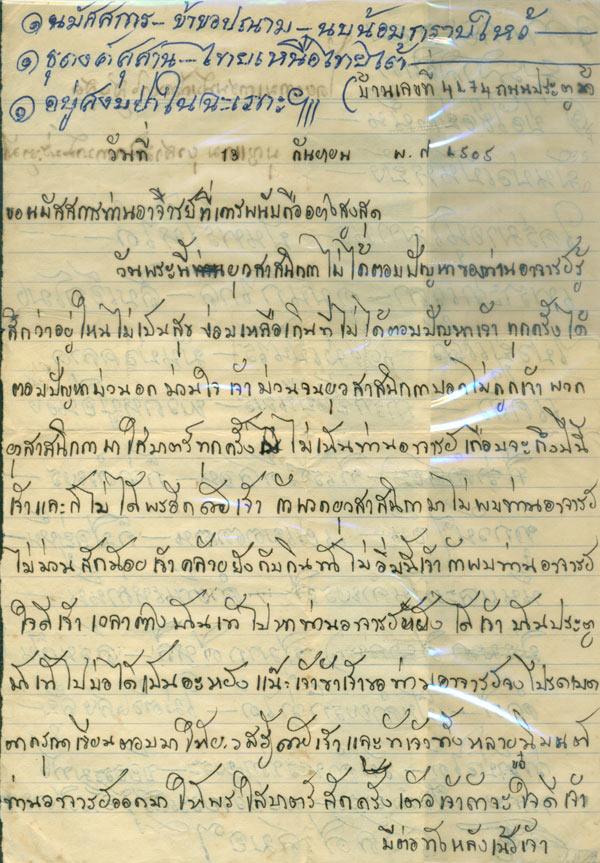 ๑ นมัสสการ - ข้าขอประนาม - นบน้อมกราบไหว้
๑ ธุดงค์สุสาน - ไทยเหนือไทยใต้
๑ อยู่สงบป่าในฉะเพาะฯ
(บ้านเลขที่ ถนนประตู
วันที่ 13 กันยายน พ.ศ ๒๕๐๕
ขอนมัสสการท่านอาจารย์ที่เคารพนับถืออย่างสูงสุด
วันพระนี้ ยุวสาสนิกา ไม่ได้ตอบปัญหาของท่านอาจารย์รู้
สึกว่าอยู่ไหนไม่เป็นสุข เหลือเกินที่ไม่ได้ตอบปัญหาเจ้า ทุกครั้งได้
ตอบปัญหาม่วนอกม่วนใจเจ้า ม่วนจนยุวสาสนิกาบอกไม่ถูกเจ้า พวก
ยุวสาสนิกามาใส่บาตร์ทุกครั้ง ไม่เห็นท่านอาจารย์ เกือบจะถึงปีนี้
เจ้าและก็ไม่ได้พรอีกด้วยเจ้า ถ้าพวกยุวสาสนิกามาไม่พบท่านอาจารย์
ไม่ม่วนสักน้อยเจ้าคล้ายยังกับกินข้าวไม่อิ่มนี้เจ้า ถ้าพบท่านอาจารย์
ใจดีเจ้า เวลา ไปหาท่านอาจารย์ ได้เจ้า ประตู
ไปบ่ได้เป็นอะหยัง แน๊ะเจ้าข้าเจ้าขอท่านอาจารย์จงโปรดเมต
ตากรุณาเขียนตอบมาให้ยุวสรู้ด้วยเจ้า และข้าเจ้าทั้งหลายนิมนต์
ท่านอาจารย์ออกมาให้พรใส่บาตร์สักครั้งเต๊อะเจ้าถ้าจะใจดีเจ้า
มีต่อทางหลังเน้อเจ้า